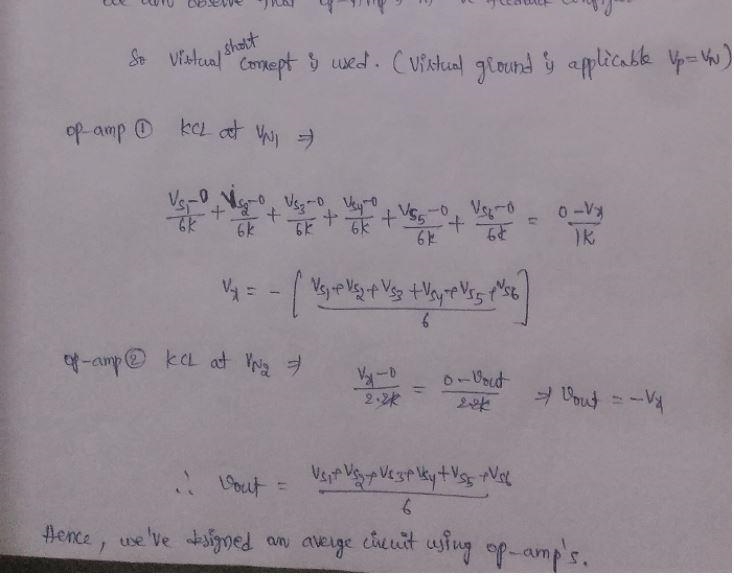 we can observe that op-amp's in ve feedback
So virtual short concept is used. (Virtual ground is applicable Vp=VN)
op-amp ① KCL at VN1 ⇒
(VS1-0)/6k + (VS2-0)/6k + (VS3-0)/6k + (VS4-0)/6k + (VS5-0)/6k + (VS6-0)/6k = (0-Vx)/1K
Vx = - [ (VS1+VS2+VS3+VS4+VS5+VS6)/6 ]
op-amp ② KCL at VN2 ⇒
(Vx-0)/2.2K = (0-Vout)/2.2K ⇒ Vout = -Vx
∴ Vout = (VS1+VS2+VS3+VS4+VS5+VS6)/6
Hence, we've designed an averge circuit using op-amp's.